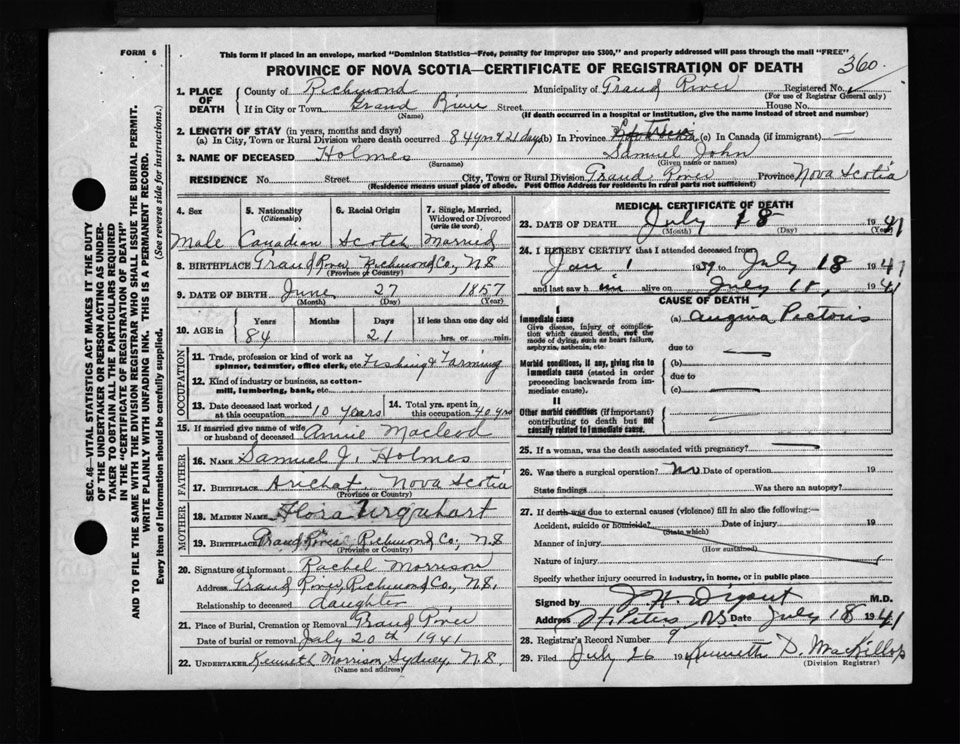 FORM 6
This form if placed in an envelope, marked "Dominion Statistics—Free, penalty for improper use $300," and properly addressed will pass through the mail "FREE"
PROVINCE OF NOVA SCOTIA—CERTIFICATE OF REGISTRATION OF DEATH
360
SEC. 46—VITAL STATISTICS ACT MAKES IT THE DUTY
OF THE UNDERTAKER OR PERSON ACTING AS UNDER-
TAKER TO OBTAIN ALL THE PARTICULARS REQUIRED
IN THE "CERTIFICATE OF REGISTRATION OF DEATH"
AND TO FILE THE SAME WITH THE DIVISION REGISTRAR WHO SHALL ISSUE THE BURIAL PERMIT.
WRITE PLAINLY WITH UNFADING INK. THIS IS A PERMANENT RECORD.
Every item of information should be carefully supplied. (See reverse side for instructions.)
1. PLACE OF DEATH
County of Richmond Municipality of Grand River Registered No.
(For use of Registrar General only)
If in City or Town Grand River Street House No.
(Name) (If death occurred in a hospital or institution, give the name instead of street and number)
2. LENGTH OF STAY (in years, months and days)
(a) In City, Town or Rural Division where death occurred 84 yrs 21 days (b) In Province (c) In Canada (if immigrant)
3. NAME OF DECEASED Holmes Samuel John
(Surname) (Given name or names)
RESIDENCE No. Street City, Town or Rural Division Grand River Province Nova Scotia
(Residence means usual place of abode. Post Office Address for residents in rural parts not sufficient)
4. Sex 5. Nationality (Citizenship) 6. Racial Origin 7. Single, Married, Widowed or Divorced (write the word)
Male Canadian Scotch Married
8. BIRTHPLACE Grand River Richmond Co, N.S
(Province or Country)
9. DATE OF BIRTH June 27 1857
(Month) (Day) (Year)
10. AGE in Years Months Days If less than one day old
84 21 hrs. or min.
OCCUPATION
11. Trade, profession or kind of work as spinner, teamster, office clerk, etc. Fishing & Farming
12. Kind of industry or business, as cotton-mill, lumbering, bank, etc.
13. Date deceased last worked at this occupation 10 years 14. Total yrs. spent in this occupation 40 yrs
15. If married give name of wife or husband of deceased Annie Macleod
FATHER
16. NAME Samuel J. Holmes
17. BIRTHPLACE Arichat Nova Scotia
(Province or Country)
MOTHER
18. MAIDEN NAME Flora Urquhart
19. BIRTHPLACE Grand River Richmond Co, N.S
(Province or Country)
20. Signature of informant Rachel Morrison
Address Grand River, Richmond Co., N.S.
Relationship to deceased daughter
21. Place of Burial, Cremation or Removal Grand River
Date of burial or removal July 20th 1941
22. UNDERTAKER Kenneth Morrison Sydney N.S.
(Name and address)
MEDICAL CERTIFICATE OF DEATH
23. DATE OF DEATH July 18 1941
(Month) (Day) (Year)
24. I HEREBY CERTIFY that I attended deceased from
Jan 1 1939 to July 18 1941
and last saw him alive on July 18, 1941
CAUSE OF DEATH
I
Immediate cause
Give disease, injury or complication which caused death, not the mode of dying, such as heart failure, asphyxia, asthenia, etc.
(a) Angina Pectoris
due to
Morbid conditions, if any, giving rise to immediate cause (stated in order proceeding backwards from immediate cause).
(b)
due to
(c)
II
Other morbid conditions (if important) contributing to death but not causally related to immediate cause.
25. If a woman, was the death associated with pregnancy?
26. Was there a surgical operation? No Date of operation 19
State findings Was there an autopsy?
27. If death was due to external causes (violence) fill in also the following:—
Accident, suicide or homicide? Date of injury 19
(State which)
Manner of injury
(How sustained)
Nature of injury
Specify whether injury occurred in industry, in home, or in public place
Signed by M.D.
Address St. Peters NS Date July 18 1941
28. Registrar's Record Number 9
29. Filed July 26 19 Kenneth D. MacKillop
(Division Registrar)